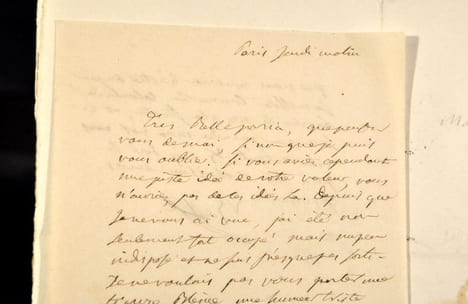 Paris Jeudi matin
Tres Belle paria, que pensez
vous de moi, si non que je puis
vous oublier. Si vous aviez cependant
une juste idée de votre valeur vous
n'auriez pas de ces idées la. Depuis que
Je ne vous ai vue, j'ai été non
seulement fort occupé mais un peu
indisposé et ne puis presque pas sorti.
Je ne voulais pas vous porter une
blême une humeur triste